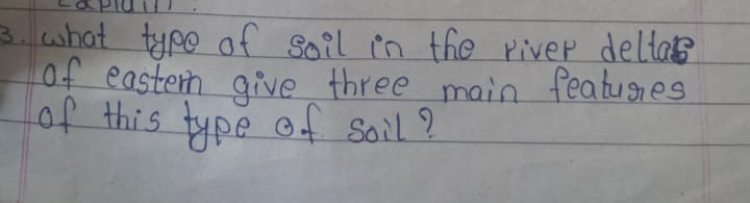 Explain?
3. what type of soil in the river deltas
of eastern give three main features
of this type of soil?